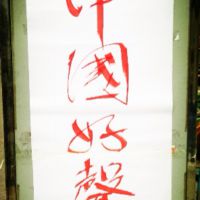 中國好聲